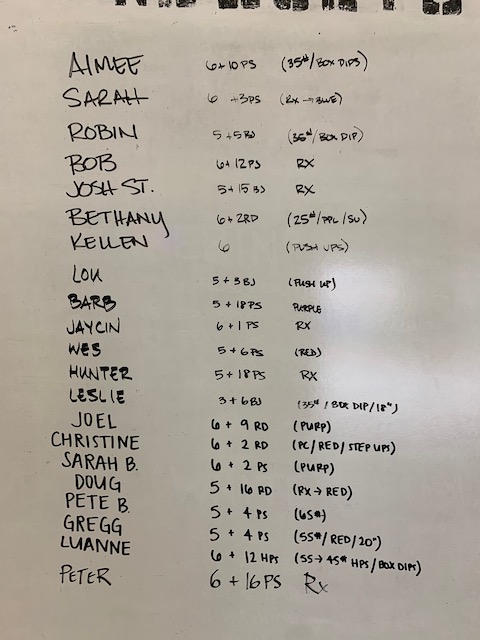 AIMEE 6+10 PS (35#/BOX DIPS)
SARAH 6 +3PS (RX → BLUE)
ROBIN 5+5BJ (35#/BOX DIP)
BOB 6+12PS RX
JOSH ST. 5+15 BJ RX
BETHANY 6+2RD (25#/PPL/SU)
KELLEN 6 (PUSH UPS)
LOU 5+3BJ (PUSH UP)
BARB 5+18PS PURPLE
JAYCIN 6+1 PS RX
WES 5+6PS (RED)
HUNTER 5+18PS RX
LESLIE 3+6BJ (35#/BOX DIP/18")
JOEL 6 + 9 RD (PURP)
CHRISTINE 6 + 2 RD (PC/RED/STEP UPS)
SARAH B. 6 + 2 PS (PURP)
DOUG 5 + 16 RD (RX → RED)
PETE B. 5 + 4 PS (65#)
GREGG 5 + 4 PS (55#/RED/20")
LUANNE 6 + 12 HPS (55→45# HPS/BOX DIPS)
PETER 6 + 16 PS Rx